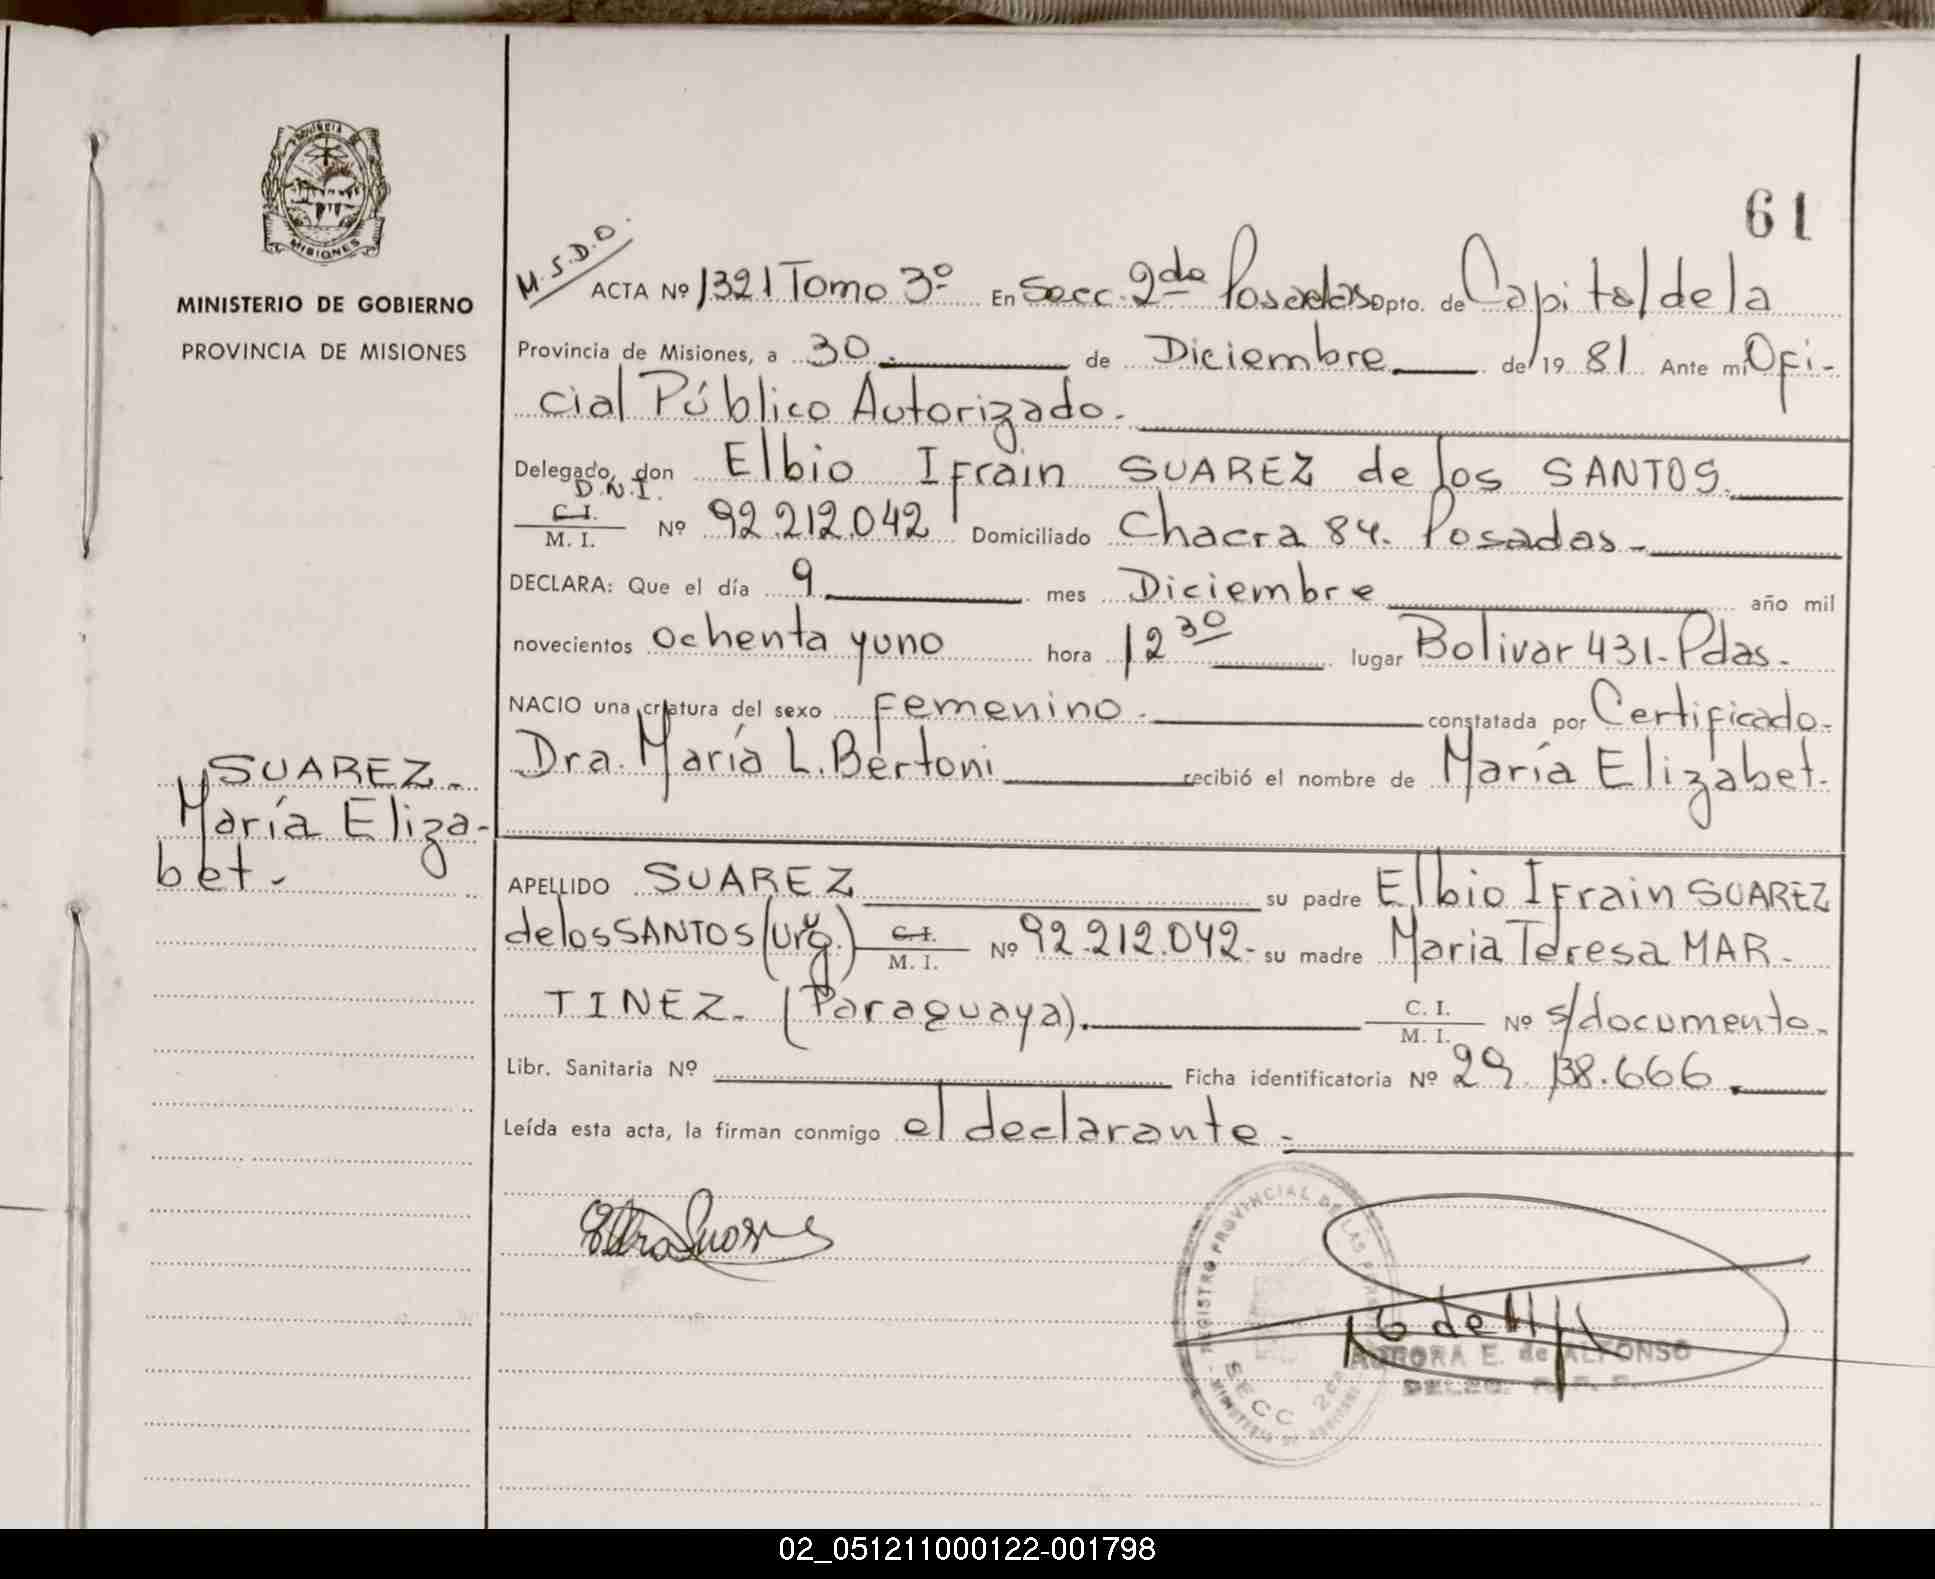 PROVINCIA DE
MISIONES
MINISTERIO DE GOBIERNO
PROVINCIA DE MISIONES
61
M.S.D.O.
ACTA Nº 1321 Tomo 3º En Secc. 2da Posadas Dpto. de Capital de la
Provincia de Misiones, a 30. de Diciembre de 19 81 Ante mi Ofi-
cial Público Autorizado.-
Delegado, don Elbio Ifrain SUAREZ de los SANTOS.
D.N.I.
C.I.
M. I. Nº 92.212.042 Domiciliado Chacra 84. Posadas-
DECLARA: Que el día 9 mes Diciembre año mil
novecientos ochenta y uno hora 12 30 lugar Bolivar 431-Pdas.-
NACIO una criatura del sexo Femenino.- constatada por Certificado.-
Dra. María L. Bertoni recibió el nombre de María Elizabet.-
SUAREZ.-
María Eliza-
bet.-
APELLIDO SUAREZ su padre Elbio Ifrain SUAREZ
de los SANTOS (urg.) C.I. M. I. Nº 92.212.042- su madre Maria Teresa MAR-
TINEZ.- (Paraguaya). C. I. M. I. Nº s/documento.-
Libr. Sanitaria Nº Ficha identificatoria Nº 29.138.666.
Leída esta acta, la firman conmigo el declarante.-
REGISTRO PROVINCIAL DE LAS
SECC 2da
MINISTERIO DE GOBIERNO
AURORA E. de ALFONSO
DELEG. R. P. P.
02_051211000122-001798